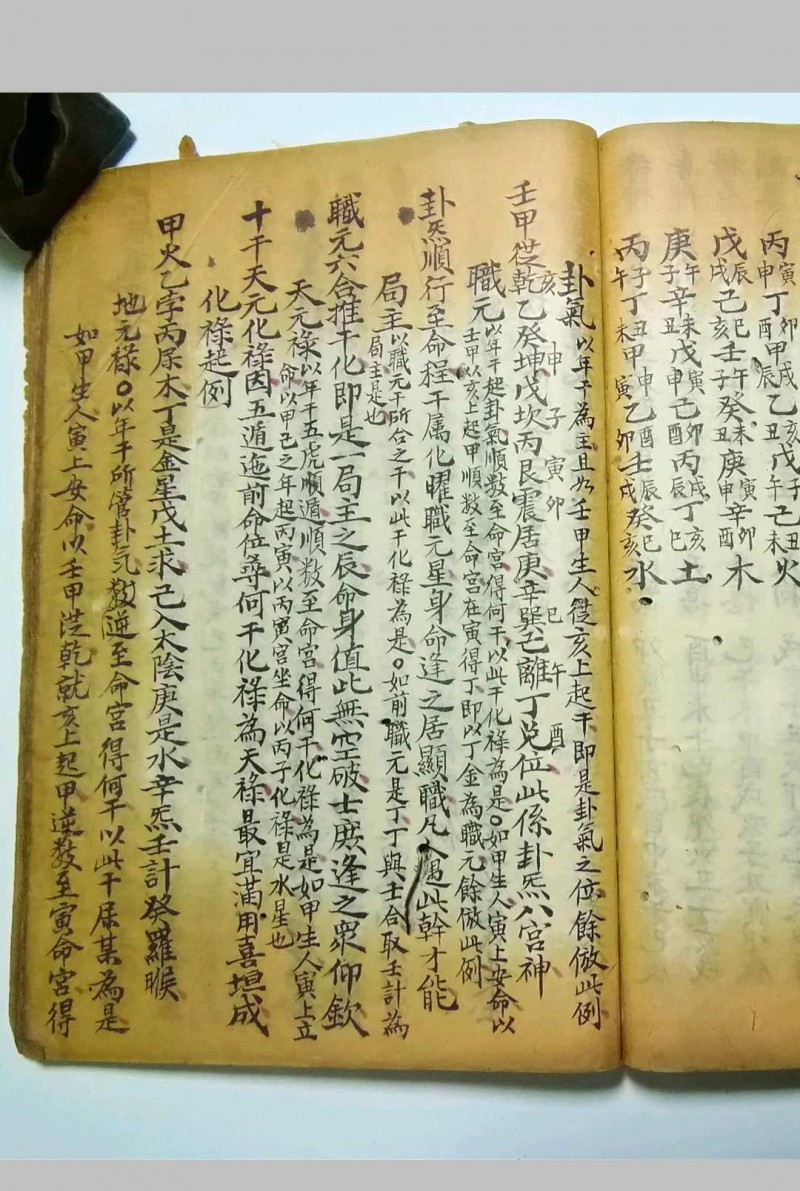 丙寅申丁卯酉甲戌辰乙亥戊子午己丑未火
戊辰戌己巳亥壬午子癸未丑庚寅申辛卯酉木
庚午子辛未丑戊寅申己卯酉丙戌辰丁亥巳土
丙子午丁丑未甲申寅乙酉卯壬辰戌癸巳亥水
卦氣以年干為主且如壬甲生人從亥上起干即是卦氣之位餘倣此例
亥申子寅卯巳午酉
壬甲從乾乙癸坤戊坎丙艮震居庚辛巽己離丁兌位此係卦炁八宮神
職元以年干起卦氣順数至命宮得何干以此干化祿為是〇如甲生人寅上安命以
壬甲以亥上起甲順数至命宮在寅得丁即以丁金為職元餘倣此例
卦炁順行至命程干属化曜職元星身命逢之居顯職凡人遇此幹才能
局主以職元干所合之干以此干化祿為是〇如前職元是丁丁與壬合取壬計為
局主是也
職元六合推干化即是一局主之辰命身值此無空破士庶逢之衆仰欽
天元祿以年干五虎順遁順数至命宮得何干化祿為是如甲生人寅上立
命以甲己之年起丙寅以丙寅宮坐命以丙子化祿是水星也
十干天元化祿因五遁迤前命位尋何干化祿為天祿最宜滿用喜垣成
化祿起例
甲火乙孛丙屬木丁是金星戊土求己入太陰庚是水辛炁壬計癸羅睺
地元祿〇以年干所管卦气数逆至命宮得何干以此干屬某為是
如甲生人寅上安命以壬甲從乾就亥上起甲逆数至寅命宮得